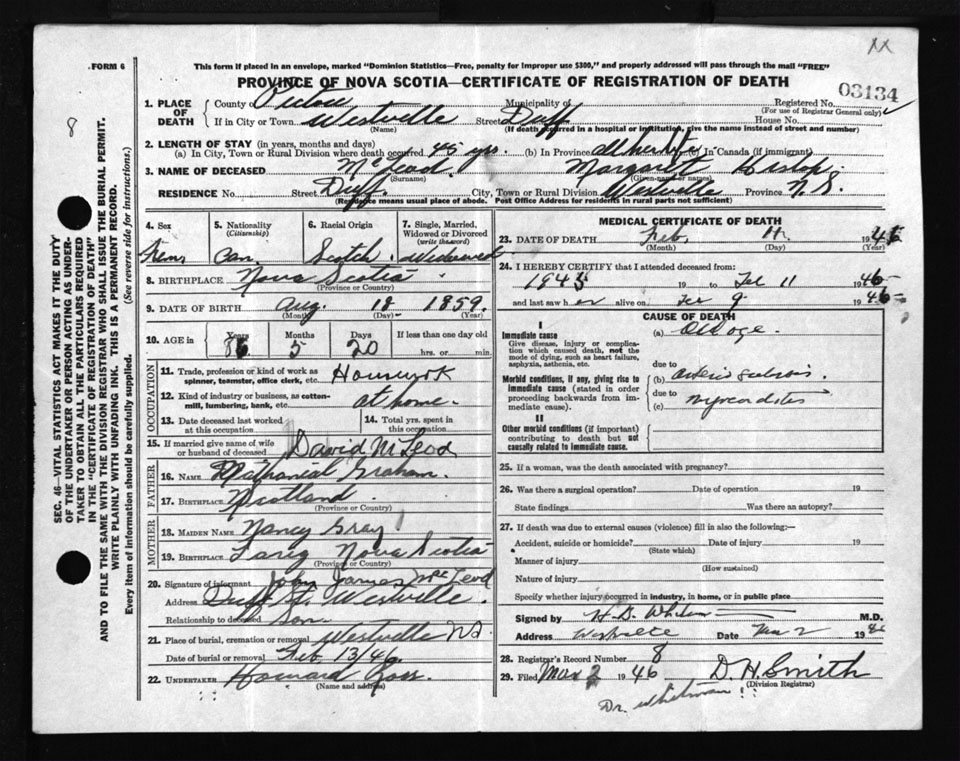 XX
FORM 6
This form if placed in an envelope, marked "Dominion Statistics—Free, penalty for improper use $300," and properly addressed will pass through the mail "FREE"
PROVINCE OF NOVA SCOTIA—CERTIFICATE OF REGISTRATION OF DEATH
03134
8
SEC. 46—VITAL STATISTICS ACT MAKES IT THE DUTY
OF THE UNDERTAKER OR PERSON ACTING AS UNDER-
TAKER TO OBTAIN ALL THE PARTICULARS REQUIRED
IN THE "CERTIFICATE OF REGISTRATION OF DEATH"
AND TO FILE THE SAME WITH THE DIVISION REGISTRAR WHO SHALL ISSUE THE BURIAL PERMIT.
WRITE PLAINLY WITH UNFADING INK. THIS IS A PERMANENT RECORD.
Every item of Information should be carefully supplied. (See reverse side for instructions.)
1. PLACE OF DEATH County of Pictou Municipality of Registered No.
(For use of Registrar General only)
If in City or Town Westville Street Duff House No.
(Name) (If death occurred in a hospital or institution, give the name instead of street and number)
2. LENGTH OF STAY (in years, months and days)
(a) In City, Town or Rural Division where death occurred 45 yrs. (b) In Province all her life (c) In Canada (if immigrant)
3. NAME OF DECEASED McLeod Margaret Hislop
(Surname) (Given names)
RESIDENCE No. Street Duff City, Town or Rural Division Westville Province N.S.
(Residence means usual place of abode. Post Office Address for residents in rural parts not sufficient)
4. Sex 5. Nationality (Citizenship) 6. Racial Origin 7. Single, Married, Widowed or Divorced (write the word)
Fem Can. Scotch Widowed
8. BIRTHPLACE Nova Scotia
(Province or Country)
9. DATE OF BIRTH Aug. 18 1859
(Month) (Day) (Year)
10. AGE in Years Months Days If less than one day old
86 5 20 hrs. or min.
OCCUPATION
11. Trade, profession or kind of work as spinner, teamster, office clerk, etc. Housework
12. Kind of industry or business, as cotton-mill, lumbering, bank, etc. at home.
13. Date deceased last worked at this occupation 14. Total yrs. spent in this occupation
15. If married give name of wife or husband of deceased David McLeod
FATHER
16. NAME Nathanial Graham
17. BIRTHPLACE Scotland
(Province or Country)
MOTHER
18. MAIDEN NAME Nancy Gray
19. BIRTHPLACE Lorig Nova Scotia
(Province or Country)
20. Signature of informant John James McLeod
Address Duff St. Westville.
Relationship to deceased Son
21. Place of burial, cremation or removal Westville NS
Date of burial or removal Feb. 13/46
22. UNDERTAKER Howard Ross.
(Name and Address)
MEDICAL CERTIFICATE OF DEATH
23. DATE OF DEATH Feb. 11 1946
(Month) (Day) (Year)
24. I HEREBY CERTIFY that I attended deceased from:
1945 19 to Feb 11 1946
and last saw her alive on Feb 9 1946
CAUSE OF DEATH
I
Immediate cause (a) Old age.
Give disease, injury or complication which caused death, not the mode of dying, such as heart failure, asphyxia, asthenia, etc.
due to
Morbid conditions, if any, giving rise to immediate cause (stated in order proceeding backwards from immediate cause). (b) arterio sclerosis
due to
(c) myocarditis
II
Other morbid conditions (if important) contributing to death but not causally related to immediate cause.
25. If a woman, was the death associated with pregnancy?
26. Was there a surgical operation? Date of operation 19
State findings Was there an autopsy?
27. If death was due to external causes (violence) fill in also the following:—
Accident, suicide or homicide? Date of injury 19
(State which)
Manner of injury
(How sustained)
Nature of injury
Specify whether injury occurred in industry, in home, or in public place
Signed by M.D.
Address Westville Date Mar 2 1946
28. Registrar's Record Number 8
29. Filed Mar 2 1946 D. H. Smith
(Division Registrar)
Dr. Whitman !!